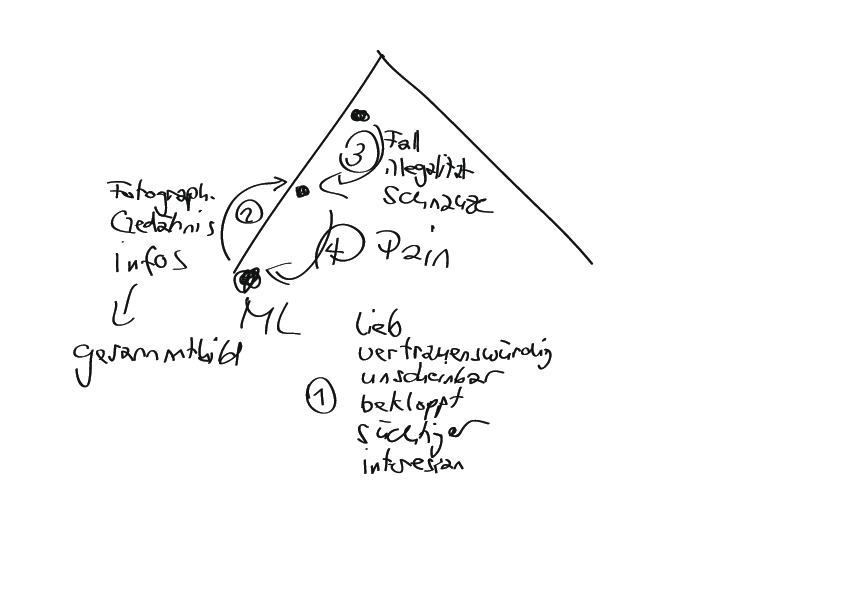 3
Fall
illegalität
Schnauze
Fotograph.
Gedähnis
infos
2
4 Pain
ML
gesammtbild
1
lieb
vertrauenswürdig
unscheinbar
bekloppt
süchtiger